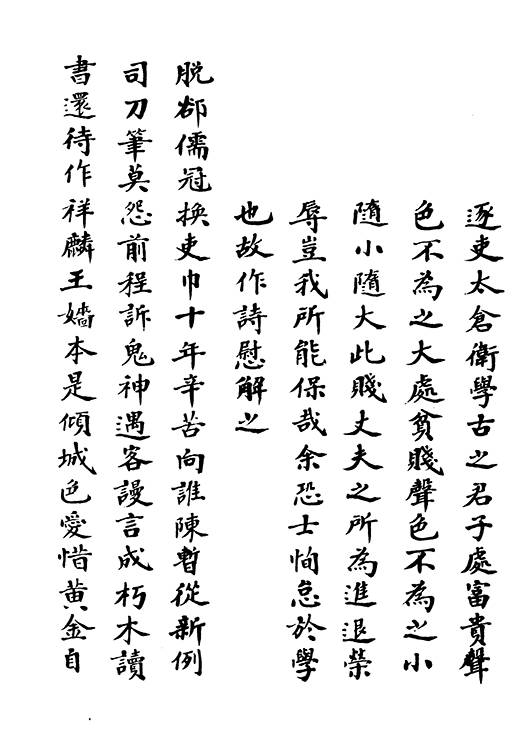 逐吏太倉衛學古之君子處富貴聲
色不為之大處貧賤聲色不為之小
隨小隨大此賤丈夫之所為進退榮
辱豈我所能保哉余恐士恂怠於學
也故作詩慰解之
脫却儒冠換吏巾十年辛苦向誰陳暫從新例
司刀筆莫怨前程訴鬼神遇客謾言成朽木讀
書還待作祥麟王嬙本是傾城色愛惜黃金自